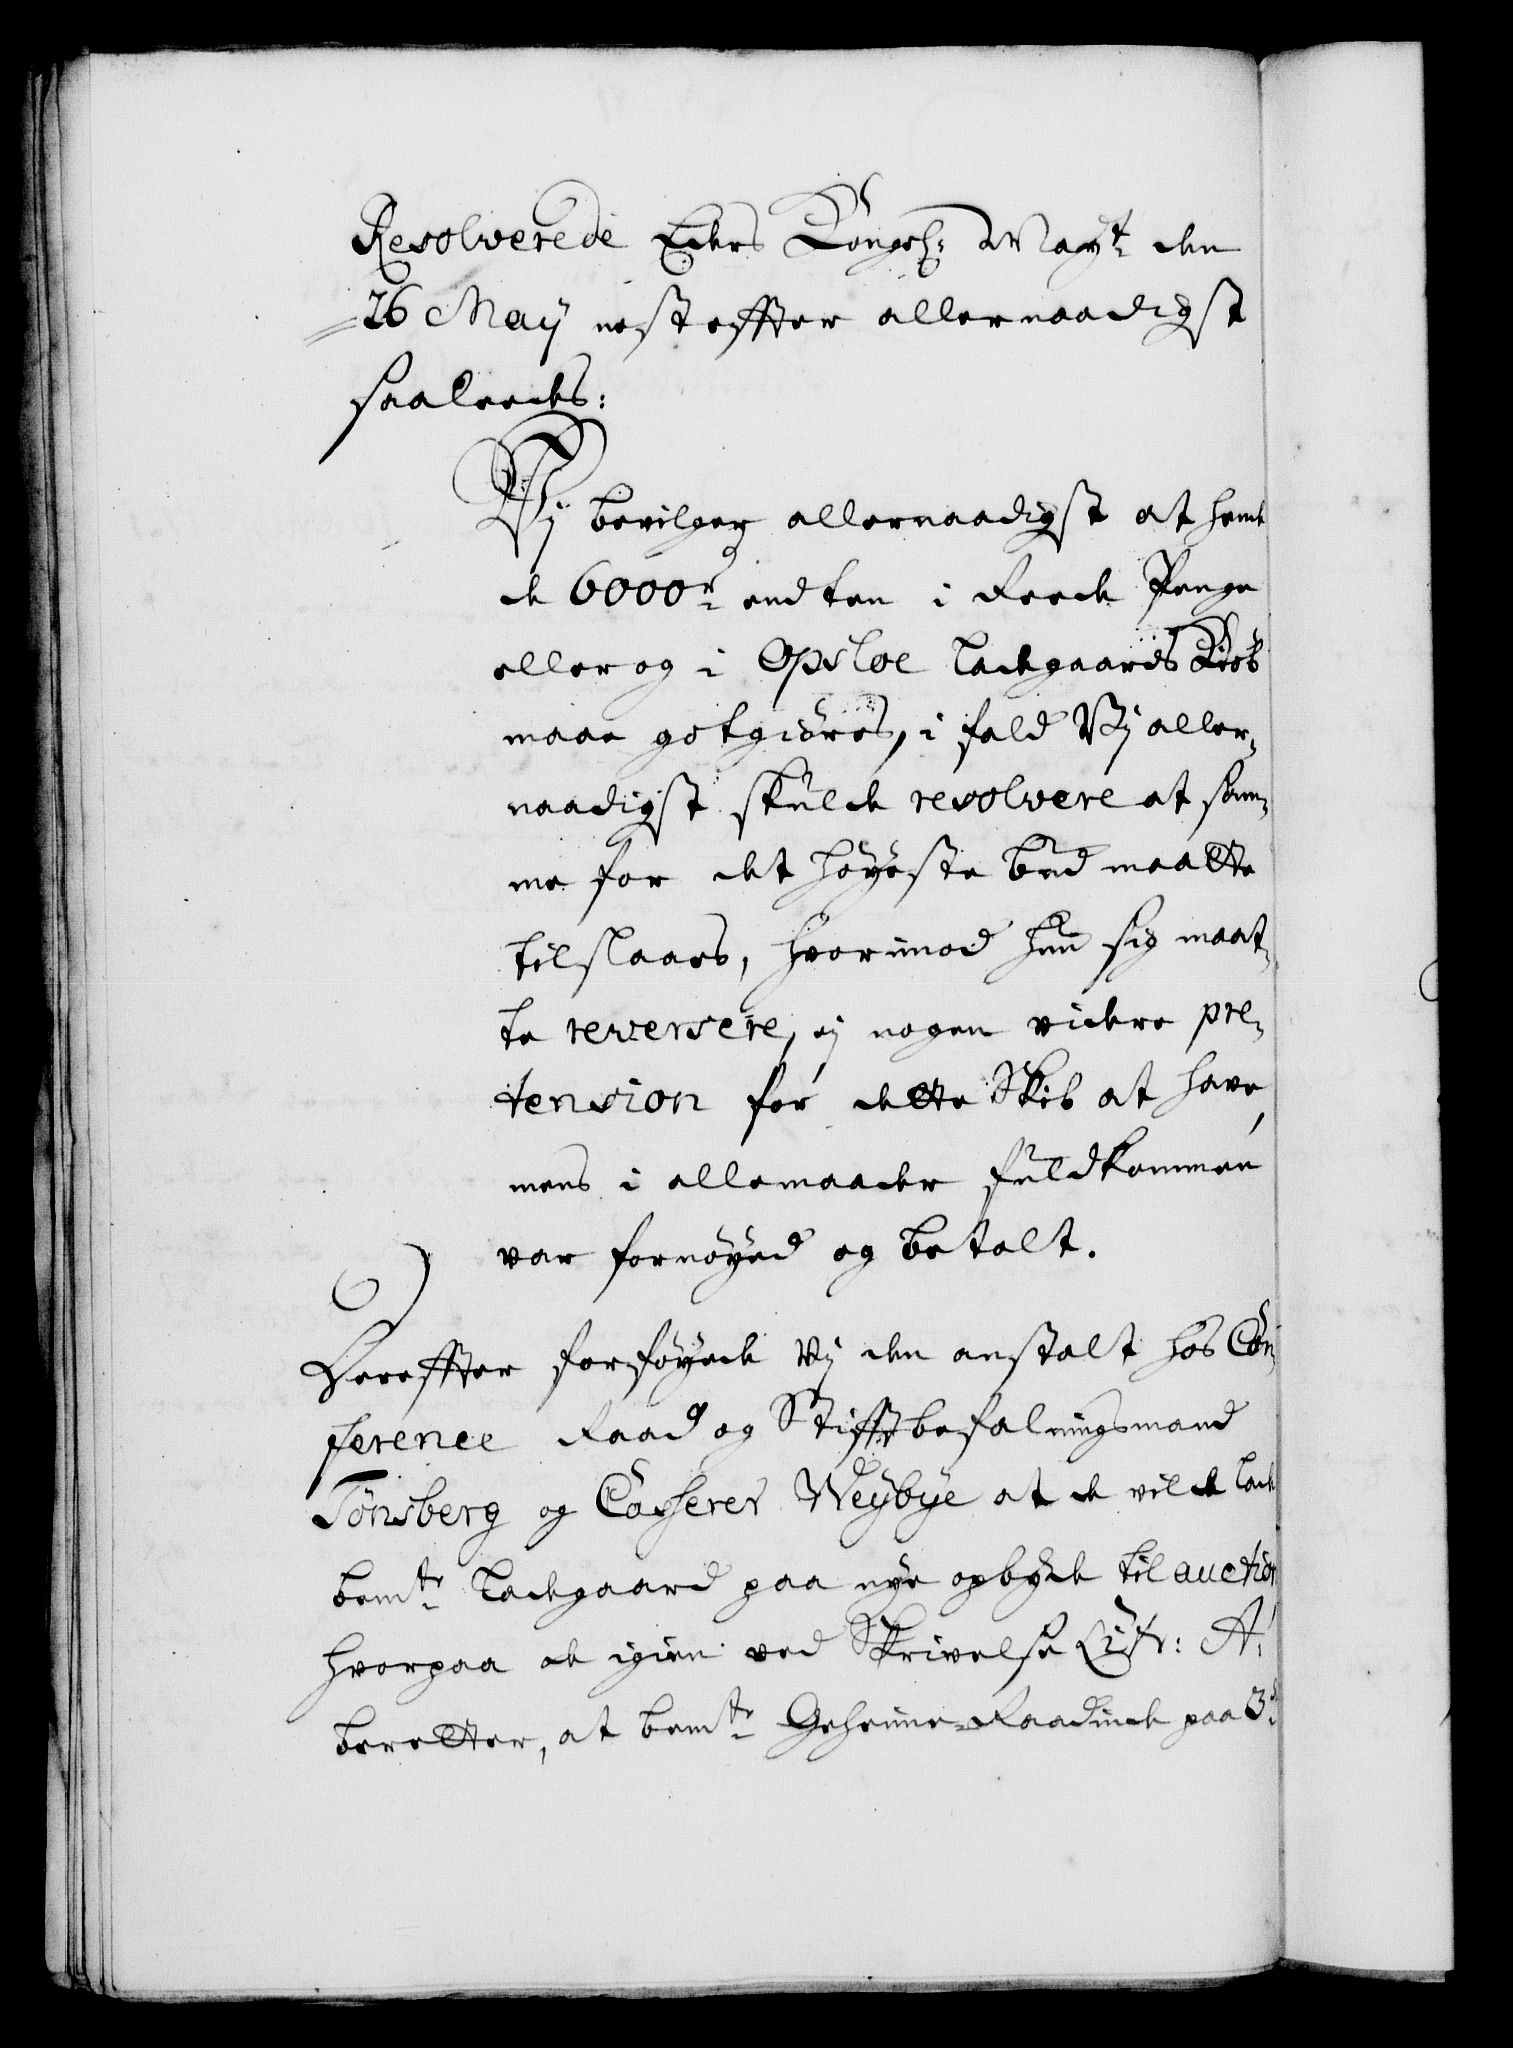 Resolverede Eders Kongel: Mayt den
26 May nest effter allernaadigst
saaleedes:
Vj bevilger allernaadigst at hende
de 6000r endten i Reede Penge
eller og i Opsloe Ladegaards Kiøb
maae gotgiøres, i fald Vj aller-
naadigst skulde resolvere at sam-
me for det høyeste bud maatte
tilslaaes, hvorimod hun sig maat-
te reversere, ej nogen videre pre-
tension for dette Skib at have,
mens i allemaader fuldkommen
var fornøyed og betalt.
Hereffter forføyede Vj den anstalt hos Con-
ference Raad og Stifftbefalningsmand
Tønsberg og Casserer Weybye at de vilde lade
bemte Ladegaard paa nye opbyde til auction
hvorpaa de igien ved Skrivelse Litr: A:
beretter, at bemte Geheime-Raadinde paa 3de